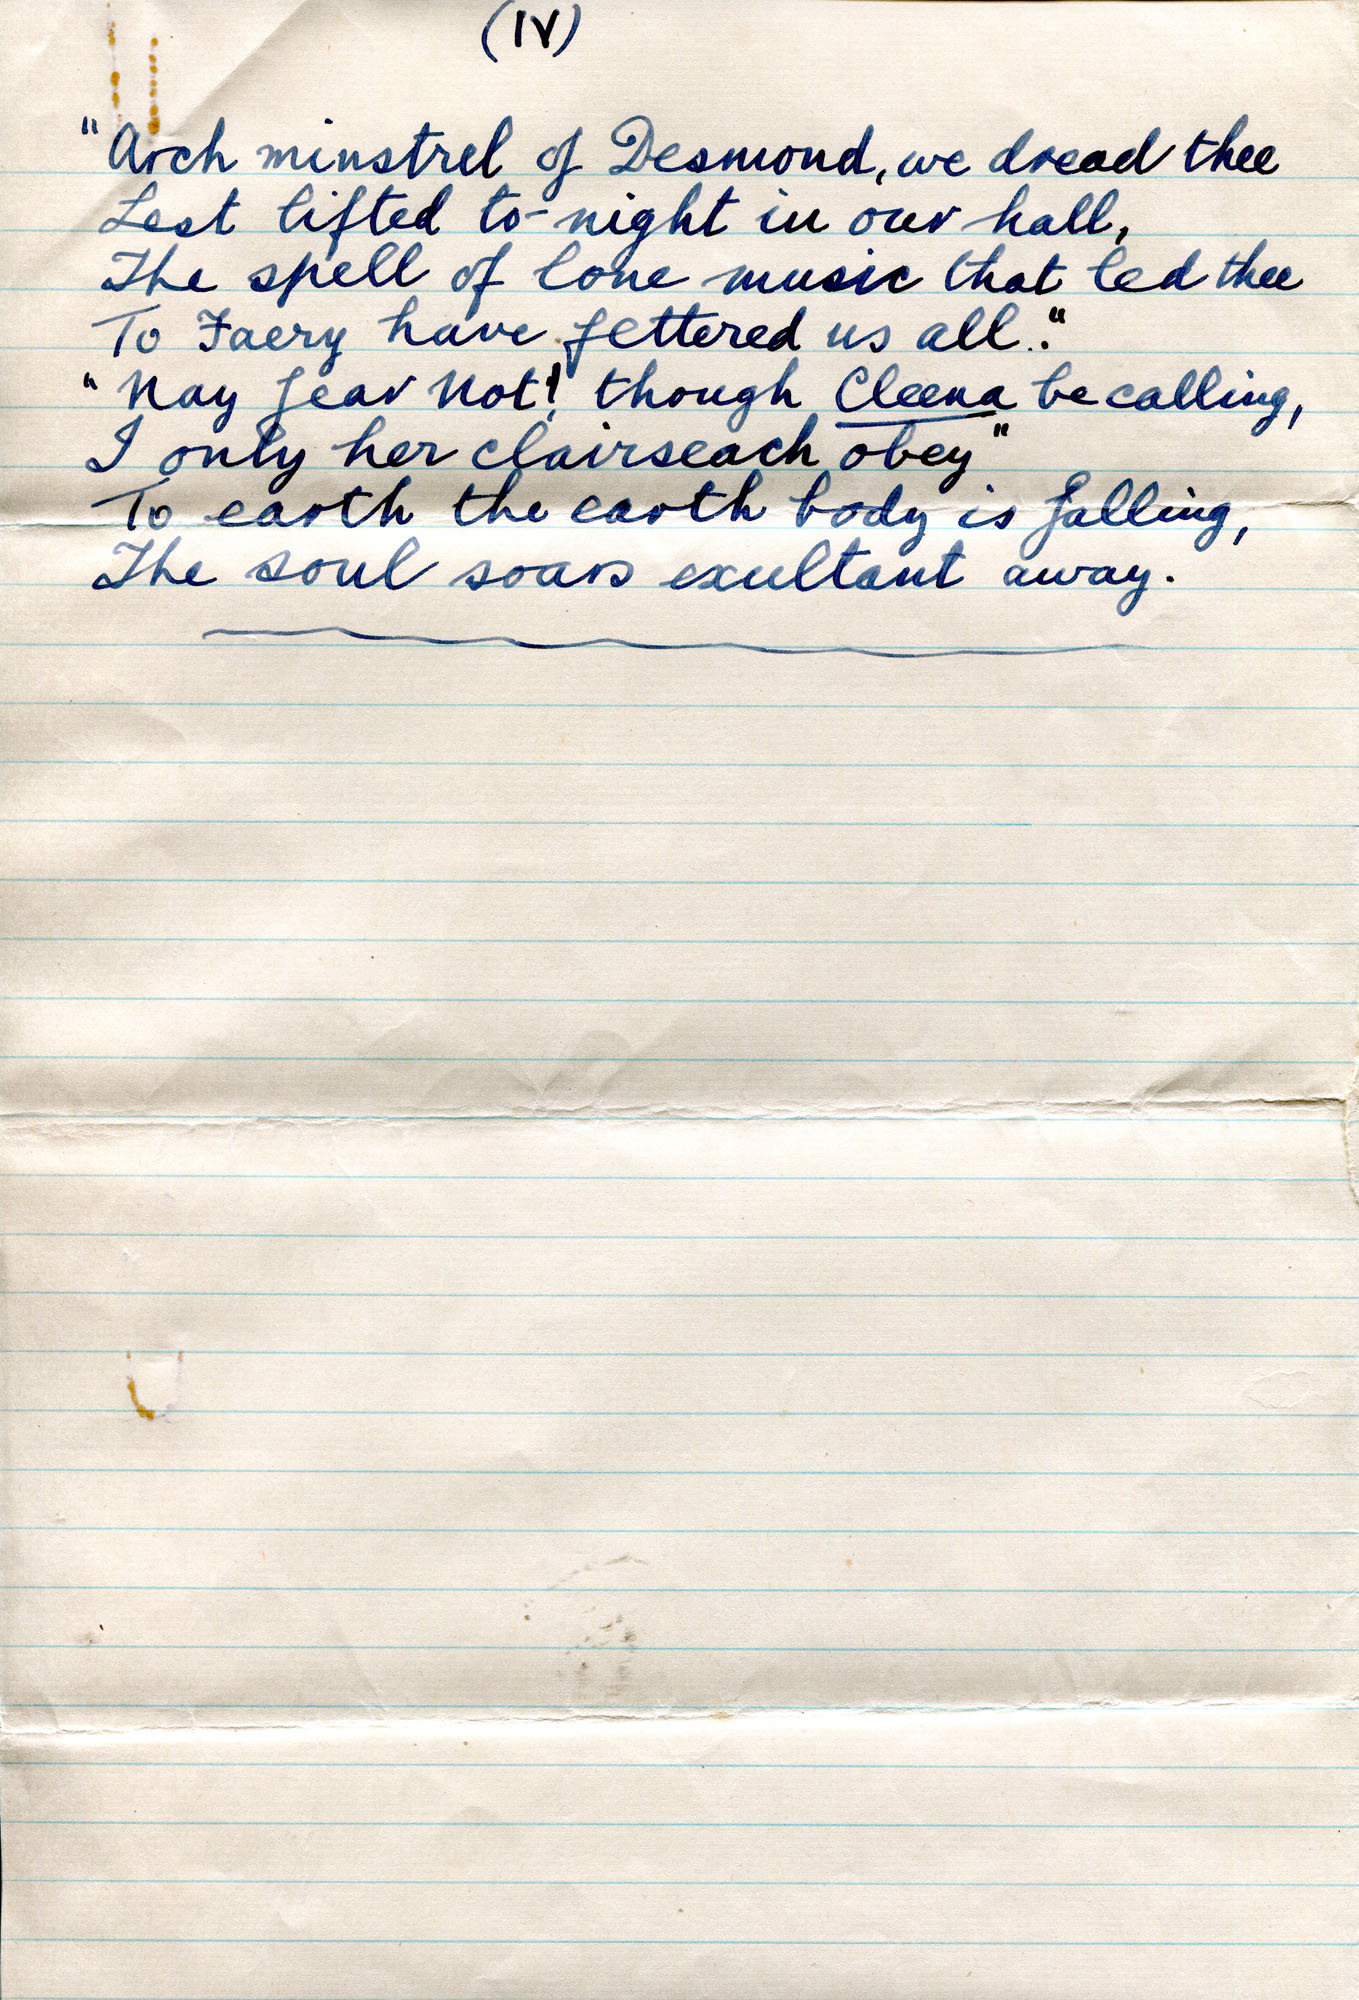 (IV)
"Arch minstrel of Desmond, we dread thee
Lest lifted to-night in our hall,
The spell of lone music that led thee
To Faery have fettered us all."
"Nay fear not! though Cleena be calling,
I only her clairseach obey"
To earth the earth body is falling,
The soul soars exultant away.